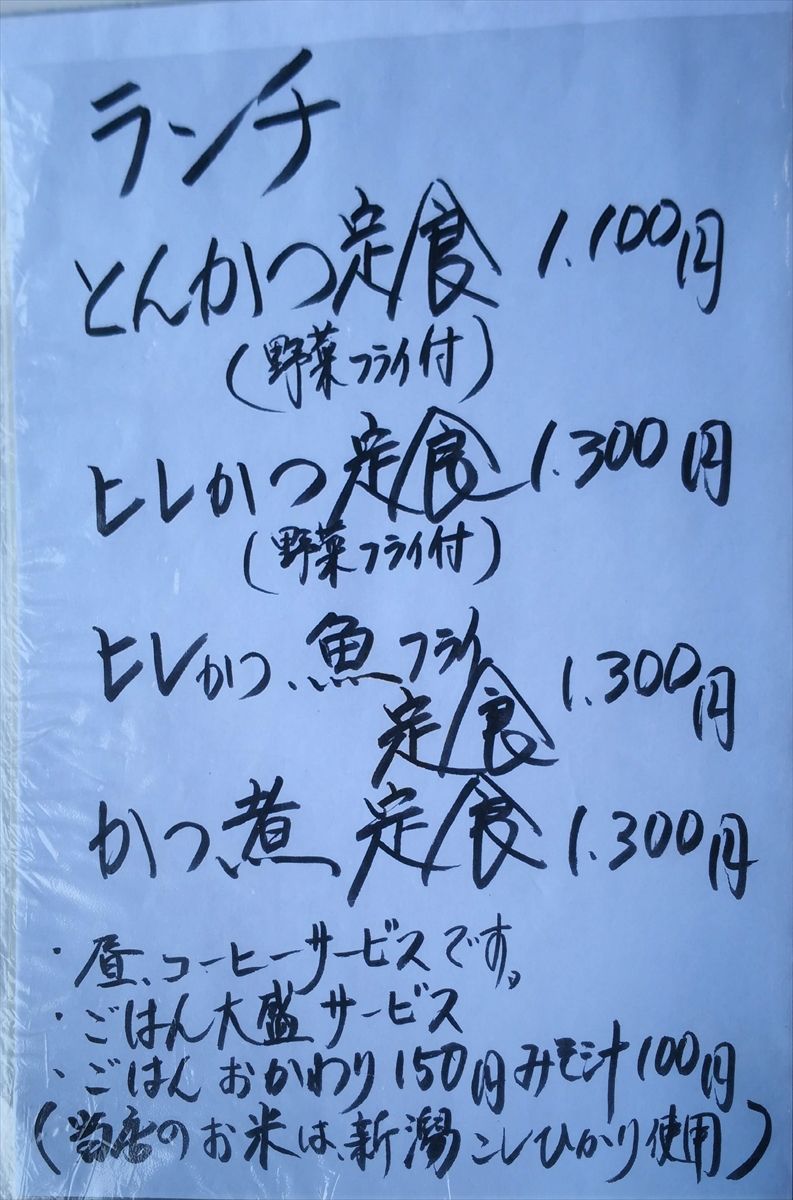 ランチ
とんかつ定食 1.100円
(野菜フライ付)
ヒレかつ定食 1.300円
(野菜フライ付)
ヒレかつ、魚フライ
定食 1.300円
かつ煮定食 1.300円
・昼、コーヒーサービスです。
・ごはん大盛サービス
・ごはんおかわり150円みそ汁100円
(当店のお米は、新潟こしひかり使用)